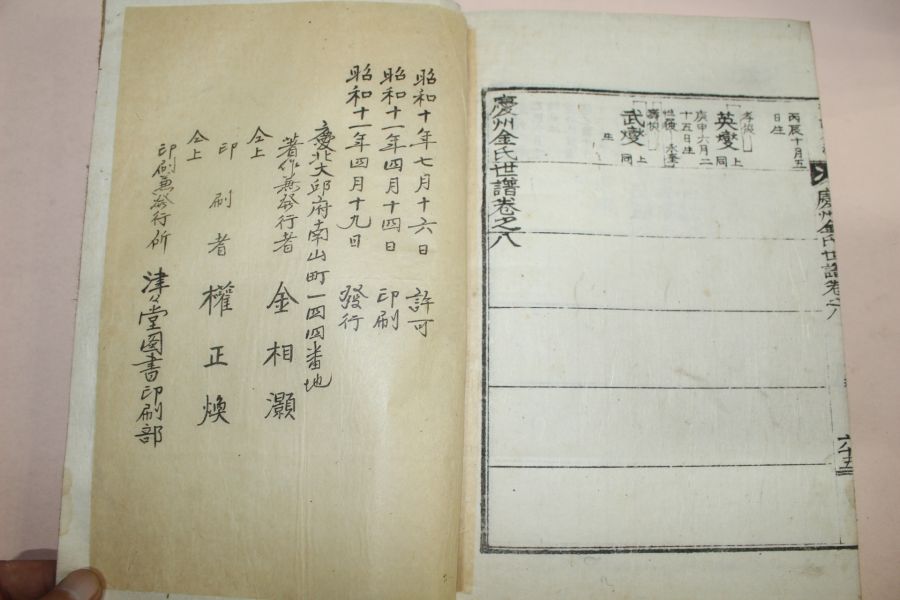 慶州金氏世譜卷之八
六十五
丙辰十月五
日生
英燮
上同
庚申六月二
十五日生
武燮
上同
生
慶州金氏世譜卷之八
昭和十年七月十六日 許可
昭和十一年四月十四日 印刷
昭和十一年四月十九日 發行
慶北大邱府南山町一四四番地
著作兼發行者 金相灝
仝上
印刷者 權正煥
仝上
印刷兼發行所 津々堂図書印刷部